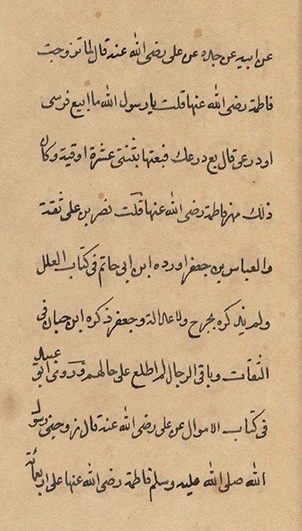 عن ابيه عن جده عن على رضى الله عنه قال لما تزوجت
فاطمة رضى الله عنها قلت يا رسول الله ما ابيع فرسى
او درعى قال بع درعك فبعتها بثنتى عشرة اوقية وكان
ذلك مهر فاطمة رضى الله عنها قلت نصر بن على ثقة
والعباس بن جعفر اورده ابن ابى حاتم فى كتاب العلل
ولم يذكره بجرح ولا عدالة وجعفر ذكره ابن حبان فى
الثقات وباقى الرجال لم اطلع على حالهم وروى ابو عبيد
فى كتاب الاموال عن على رضى الله عنه قال زوجنى رسول
الله صلى الله عليه وسلم فاطمة رضى الله عنها على اربعمائة